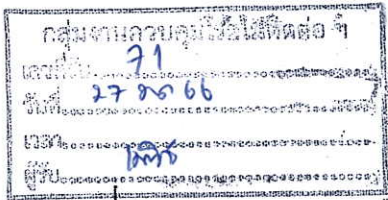 กลุ่มงานควบคุมโรคไม่ติดต่อ ฯ
เลขที่รับ 71
วันที่ 27 มค 66
เวลา
ผู้รับ